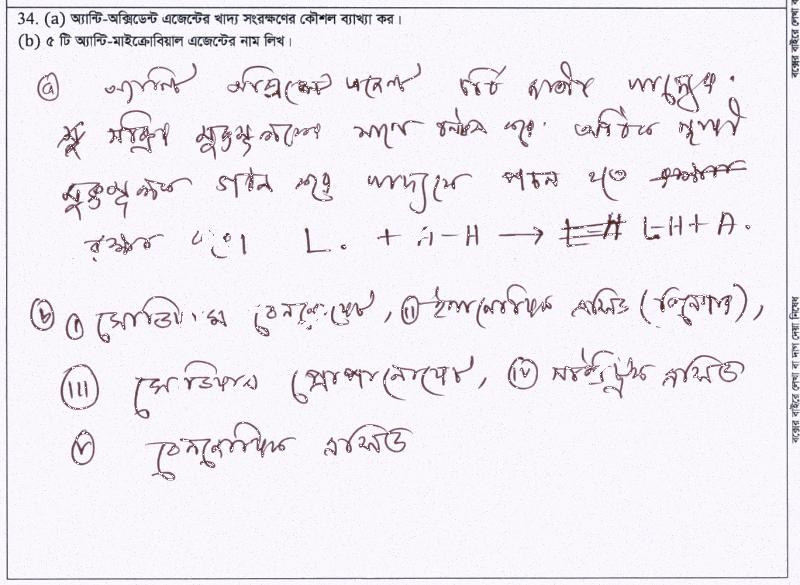 34. (a) অ্যান্টি-অক্সিডেন্ট এজেন্টের খাদ্য সংরক্ষণের কৌশল ব্যাখ্যা কর।
(b) ৫ টি অ্যান্টি-মাইক্রোবিয়াল এজেন্টের নাম লিখ।
(a) অ্যান্টি অক্সিডেন্ট এজেন্ট চর্বি জাতীয় খাদ্যের
সক্রিয় মুক্তমূলকের সাথে বন্ধন করে অধিক স্থায়ী
মুক্তমূলক গঠন করে খাদ্যকে পচন হতে
রক্ষা করে। L. + A-H → LH+ A.
(b) (i) সোডিয়াম বেনজোয়েট, (ii) ইথানোয়িক এসিড (ভিনেগার),
(iii) সোডিয়াম প্রোপানোয়েট, (iv) সাইট্রিক এসিড
(v) বেনজোয়িক এসিড
বক্সের বাইরে লেখা বা দাগ দেয়া নিষেধ